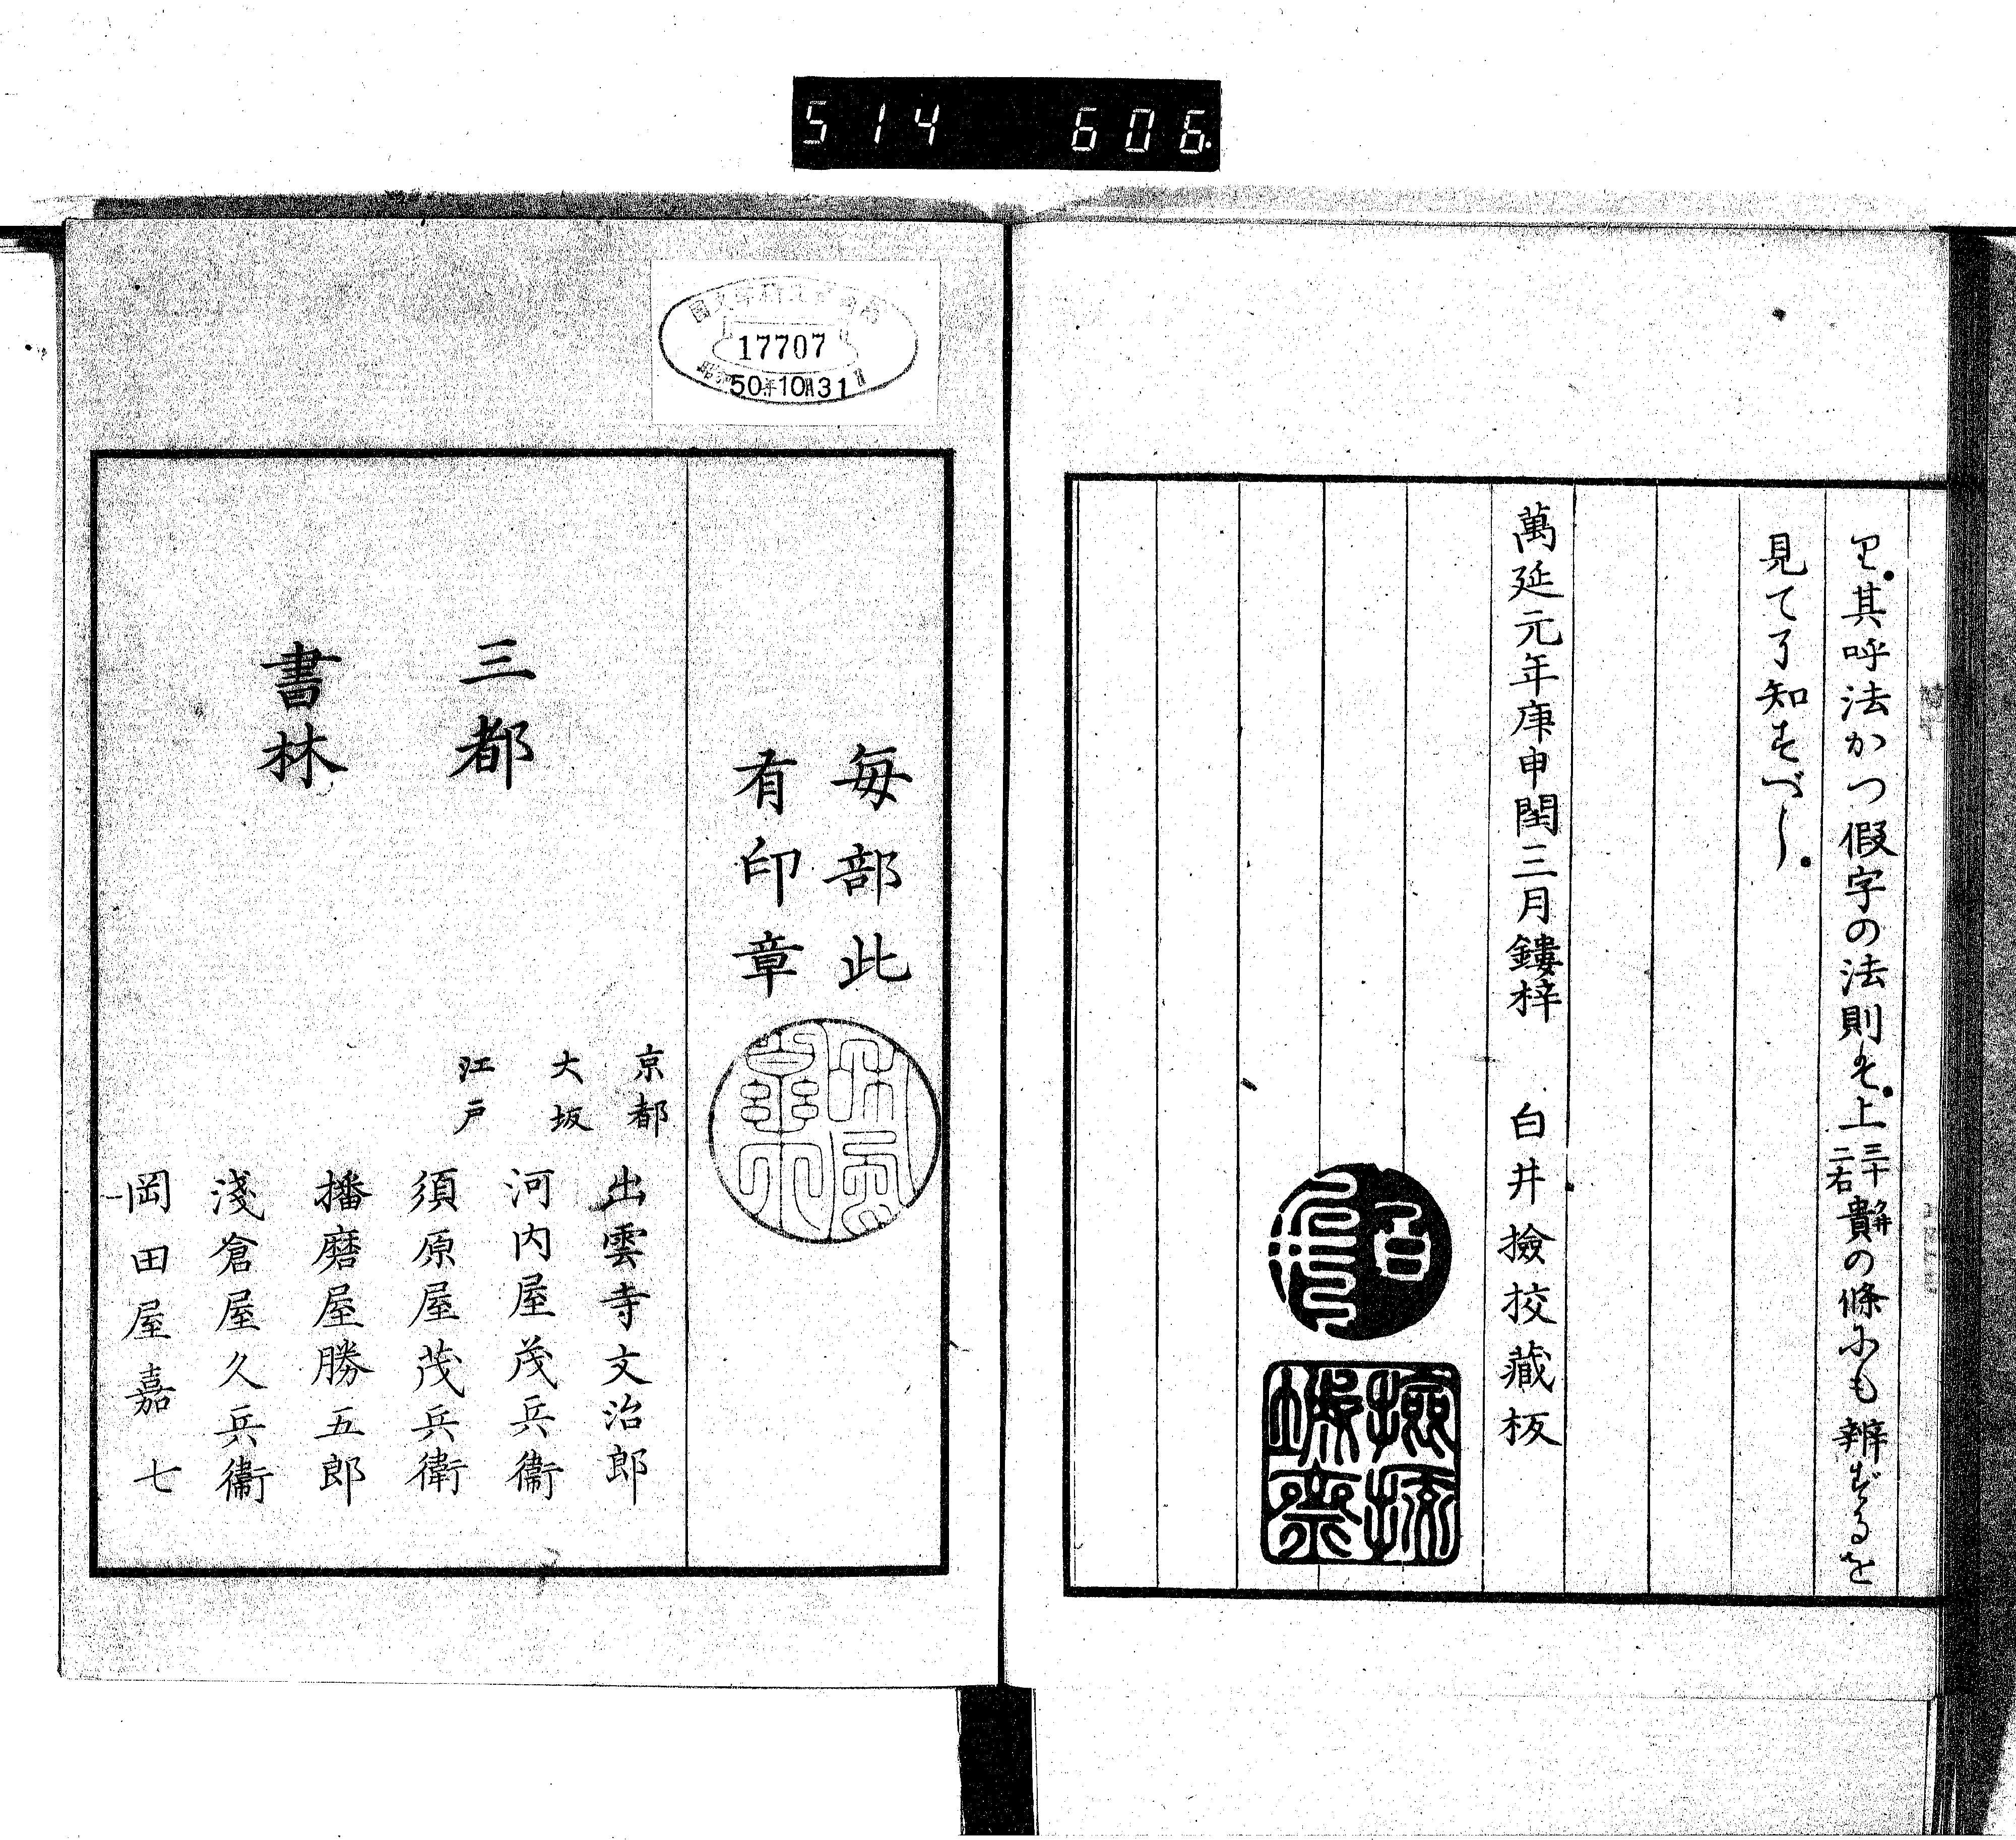 514 606
其呼法かつ假字の法則は上三十二右貴の條にも辨ずるを
見て了知すべし
萬延元年庚申閏三月鏤梓 白井撿挍藏板
17707
50年10月31日
每部此
有印章
三都
書林
京都 出雲寺文治郎
大坂 河内屋茂兵衞
江戸 須原屋茂兵衛
播磨屋勝五郎
淺倉屋久兵衞
岡田屋嘉七